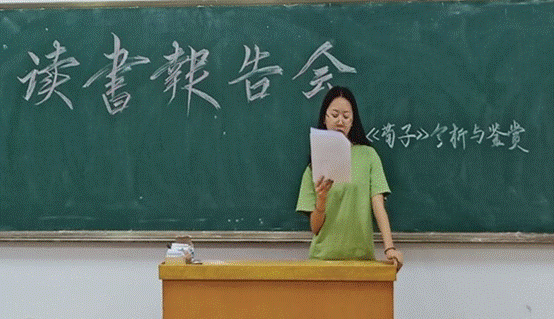 读書報告会
《荀子》分析与鉴赏